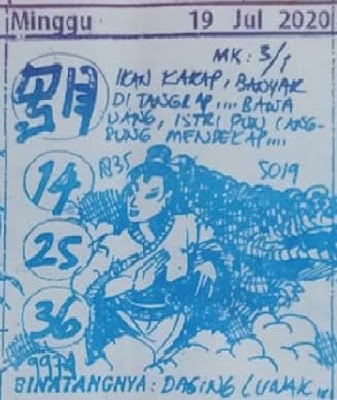 Minggu 19 Jul 2020
MK: 3/1
IKAN KAKAP, BANYAK
DI TANGKAP.... BAWA
UANG, ISTRI PUN LANG-
SUNG MENDEKAP....
14
5019
25
36
BINATANGNYA: DAGING LUNAK...